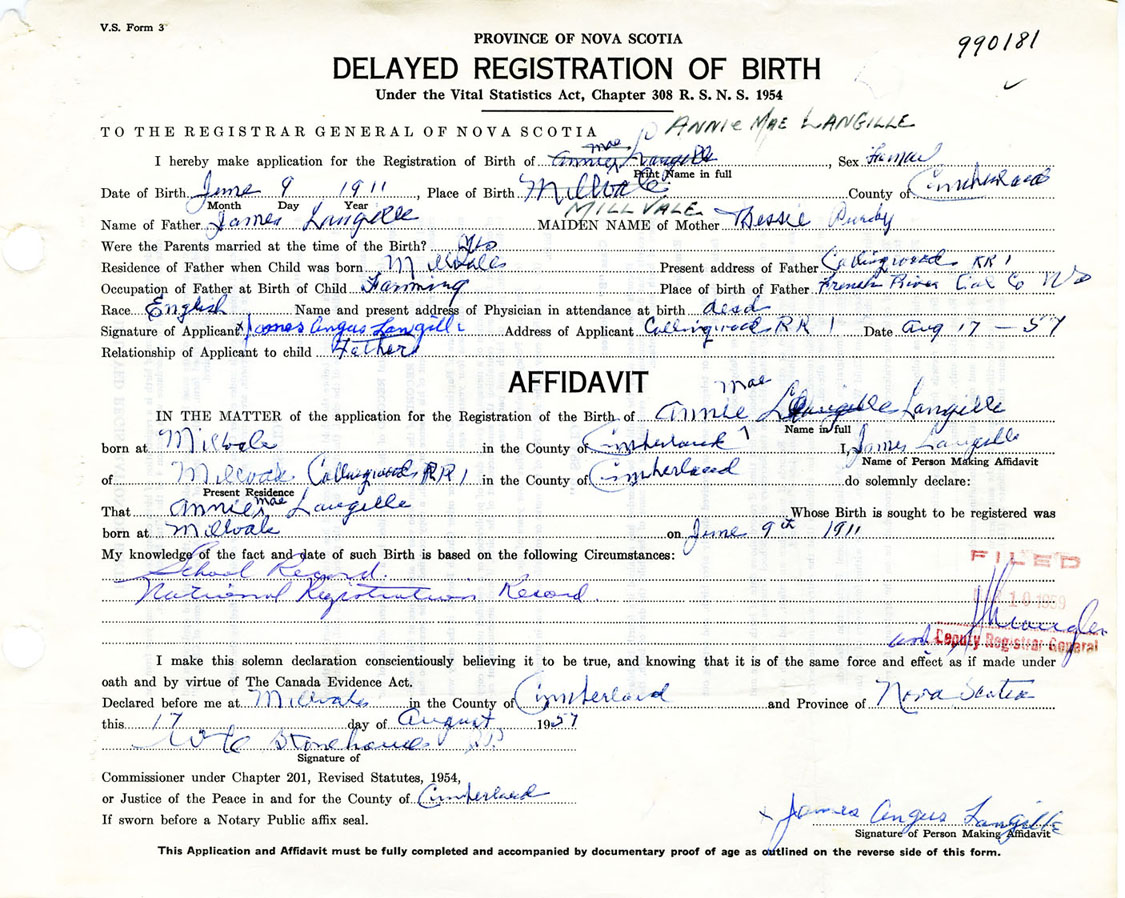 V.S. Form 3
PROVINCE OF NOVA SCOTIA
990181
DELAYED REGISTRATION OF BIRTH
Under the Vital Statistics Act, Chapter 308 R. S. N. S. 1954
ANNIE MAE LANGILLE
TO THE REGISTRAR GENERAL OF NOVA SCOTIA
I hereby make application for the Registration of Birth of Annie Mae Langille, Sex Female
Print Name in full
Date of Birth June 9 1911, Place of Birth Millvale County of Cumberland
Month Day Year
MILLVALE
Name of Father James Langille MAIDEN NAME of Mother Bessie Purdy
Were the Parents married at the time of the Birth? Yes
Residence of Father when Child was born Millvale Present address of Father Collingwood RR 1
Occupation of Father at Birth of Child Farming Place of birth of Father French River Col Co NS
Race English Name and present address of Physician in attendance at birth dead
Signature of Applicant x James Angus Langille Address of Applicant Collingwood RR 1 Date Aug 17 - 57
Relationship of Applicant to child Father
AFFIDAVIT
IN THE MATTER of the application for the Registration of the Birth of Annie Mae Langille
Name in full
born at Millvale in the County of Cumberland I, James Langille
Name of Person Making Affidavit
of Millvale Collingwood RR 1 in the County of Cumberland do solemnly declare:
Present Residence
That Annie Mae Langille Whose Birth is sought to be registered was
born at Millvale on June 9th 1911
My knowledge of the fact and date of such Birth is based on the following Circumstances:
School Record.
National Registration Record
FILED
10 1959
Deputy Registrar General
I make this solemn declaration conscientiously believing it to be true, and knowing that it is of the same force and effect as if made under
oath and by virtue of The Canada Evidence Act.
Declared before me at Millvale in the County of Cumberland and Province of Nova Scotia
this 17 day of August 1957
Stonehouse J.P.
Signature of
Commissioner under Chapter 201, Revised Statutes, 1954,
or Justice of the Peace in and for the County of Cumberland
If sworn before a Notary Public affix seal.
x James Angus Langille
Signature of Person Making Affidavit
This Application and Affidavit must be fully completed and accompanied by documentary proof of age as outlined on the reverse side of this form.